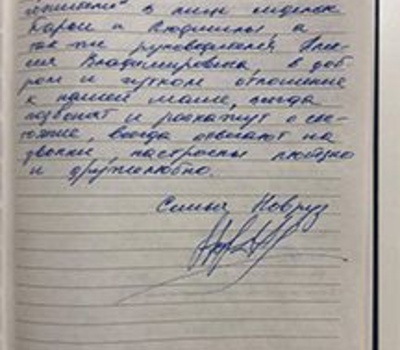 в лице сиделок
и Людмилы, а
так же руководителя Але-
сия Владимировна, в доб-
ром и чутком отношение
к нашей маме, всегда
позвонят и расскажут о све-
жие, всегда отвечают на
звонки, настроены любезно
и дружелюбно.
Семья Новруз